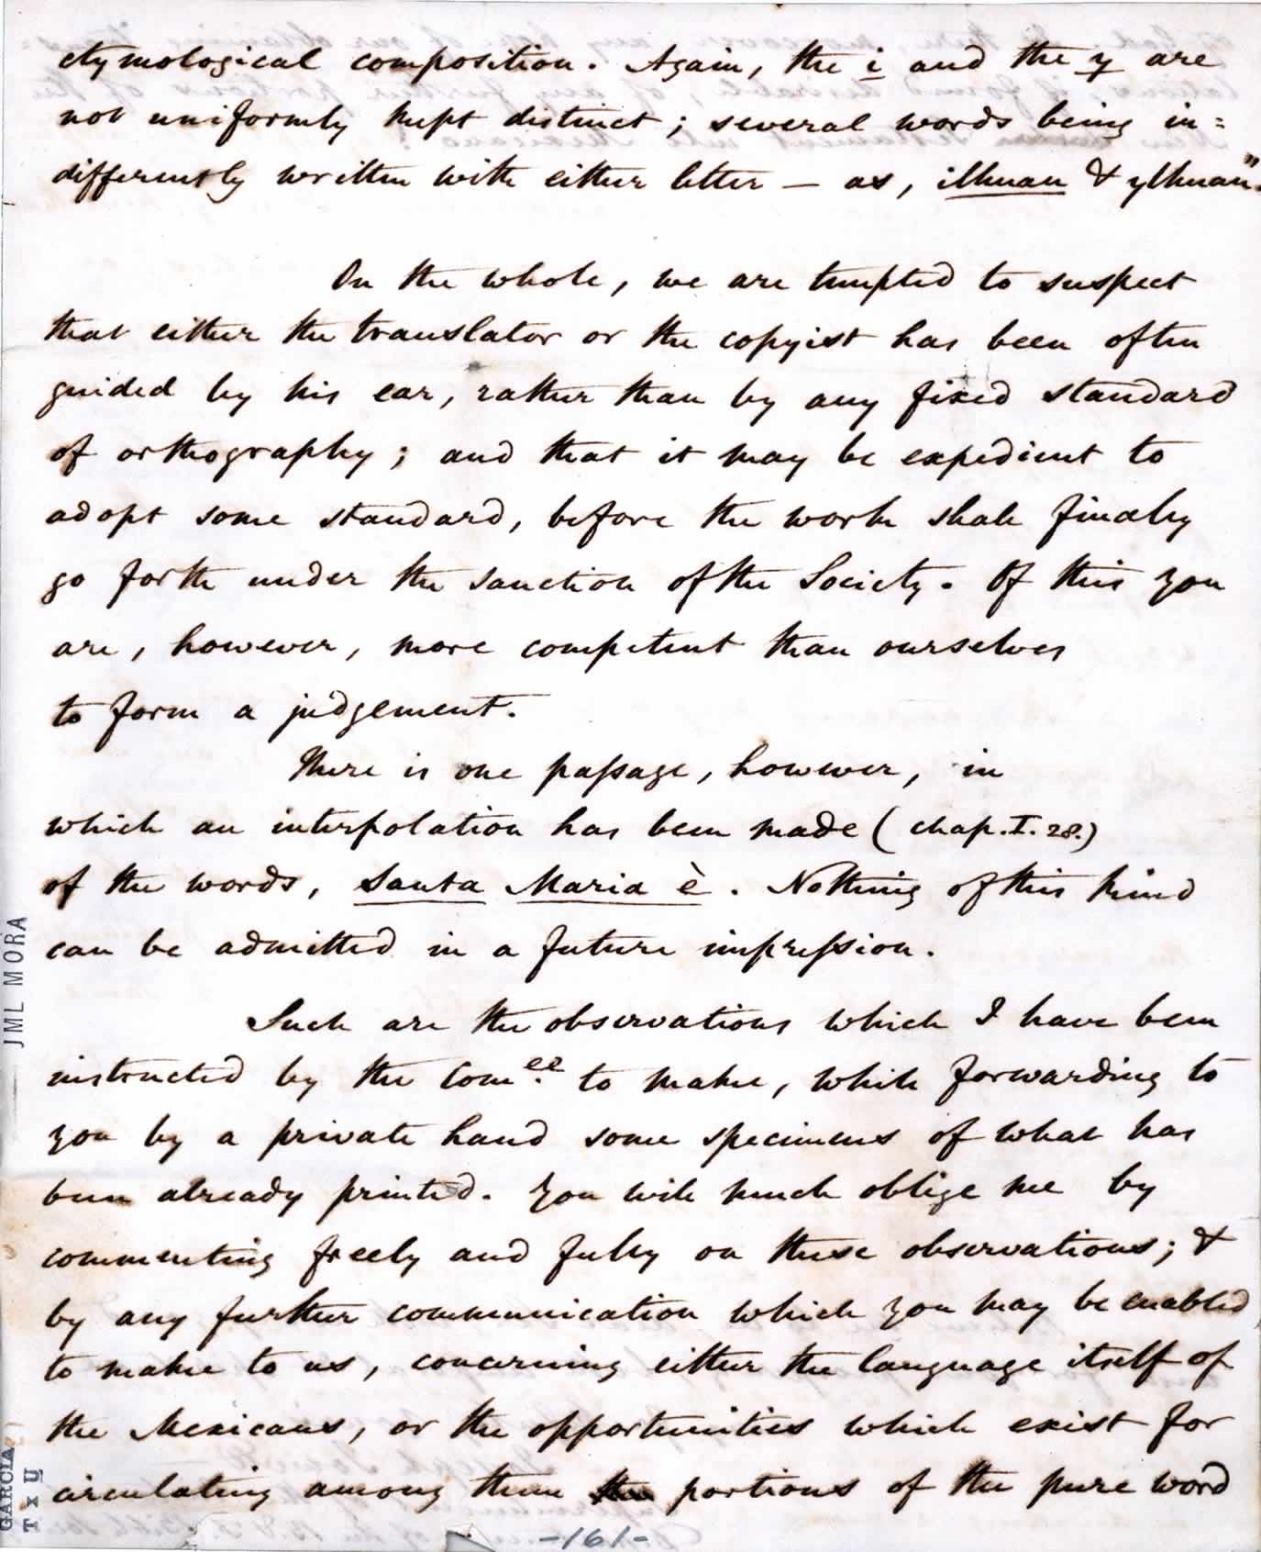 etymological composition. Again, the i and the y are
not uniformly kept distinct; several words being in=
differently written with either letter — as, ilhuau & ylhuau".
On the whole, we are tempted to suspect
that either the translator or the copyist has been often
guided by his ear, rather than by any fixed standard
of orthography; and that it may be expedient to
adopt some standard, before the work shall finally
go forth under the sanction of the Society. Of this you
are, however, more competent than ourselves
to form a judgement.
There is one paſsage, however, in
which an interpolation has been made (chap. I. 28.)
of the words, Santa Maria è. Nothing of this kind
can be admitted in a future impreſsion.
Such are the observations which I have been
instructed by the Com.ee to make, while forwarding to
you by a private hand some specimens of what has
been already printed. You will much oblige me by
commenting freely and fully on these observations; &
by any further communication which you may be enabled
to make to us, concerning either the language itself of
the Mexicans, or the opportunities which exist for
circulating among them portions of the pure word
-161-
JML MORA
GARCIA
TxU